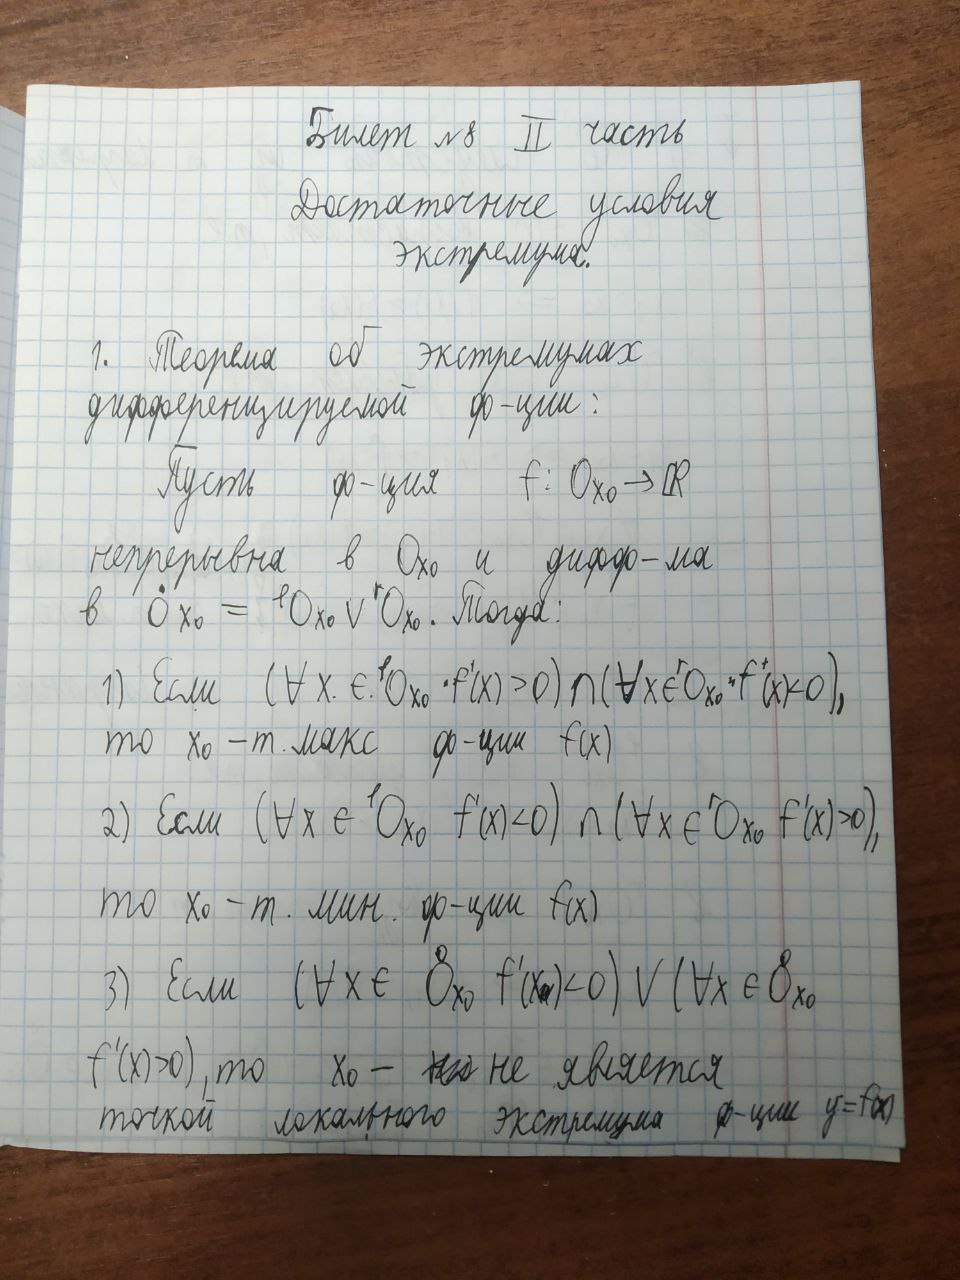 Билет №8 II часть
Достаточные условия
экстремума.
1. Теорема об экстремумах
дифференцируемой ф-ции:
Пусть ф-ция f: Ox₀ → ℝ
непрерывна в Ox₀ и дифф-ма
в O̊x₀ = ˡOx₀ ∨ ʳOx₀. Тогда:
1) Если (∀x ∈ ˡOx₀ f'(x)>0) ∩ (∀x ∈ ʳOx₀ f'(x)<0),
то x₀ – т. макс ф-ции f(x)
2) Если (∀x ∈ ˡOx₀ f'(x)<0) ∩ (∀x ∈ ʳOx₀ f'(x)>0),
то x₀ – т. мин. ф-ции f(x)
3) Если (∀x ∈ O̊x₀ f'(x)<0) ∨ (∀x ∈ O̊x₀
f'(x)>0), то x₀ – не является
точкой локального экстремума ф-ции y=f(x)